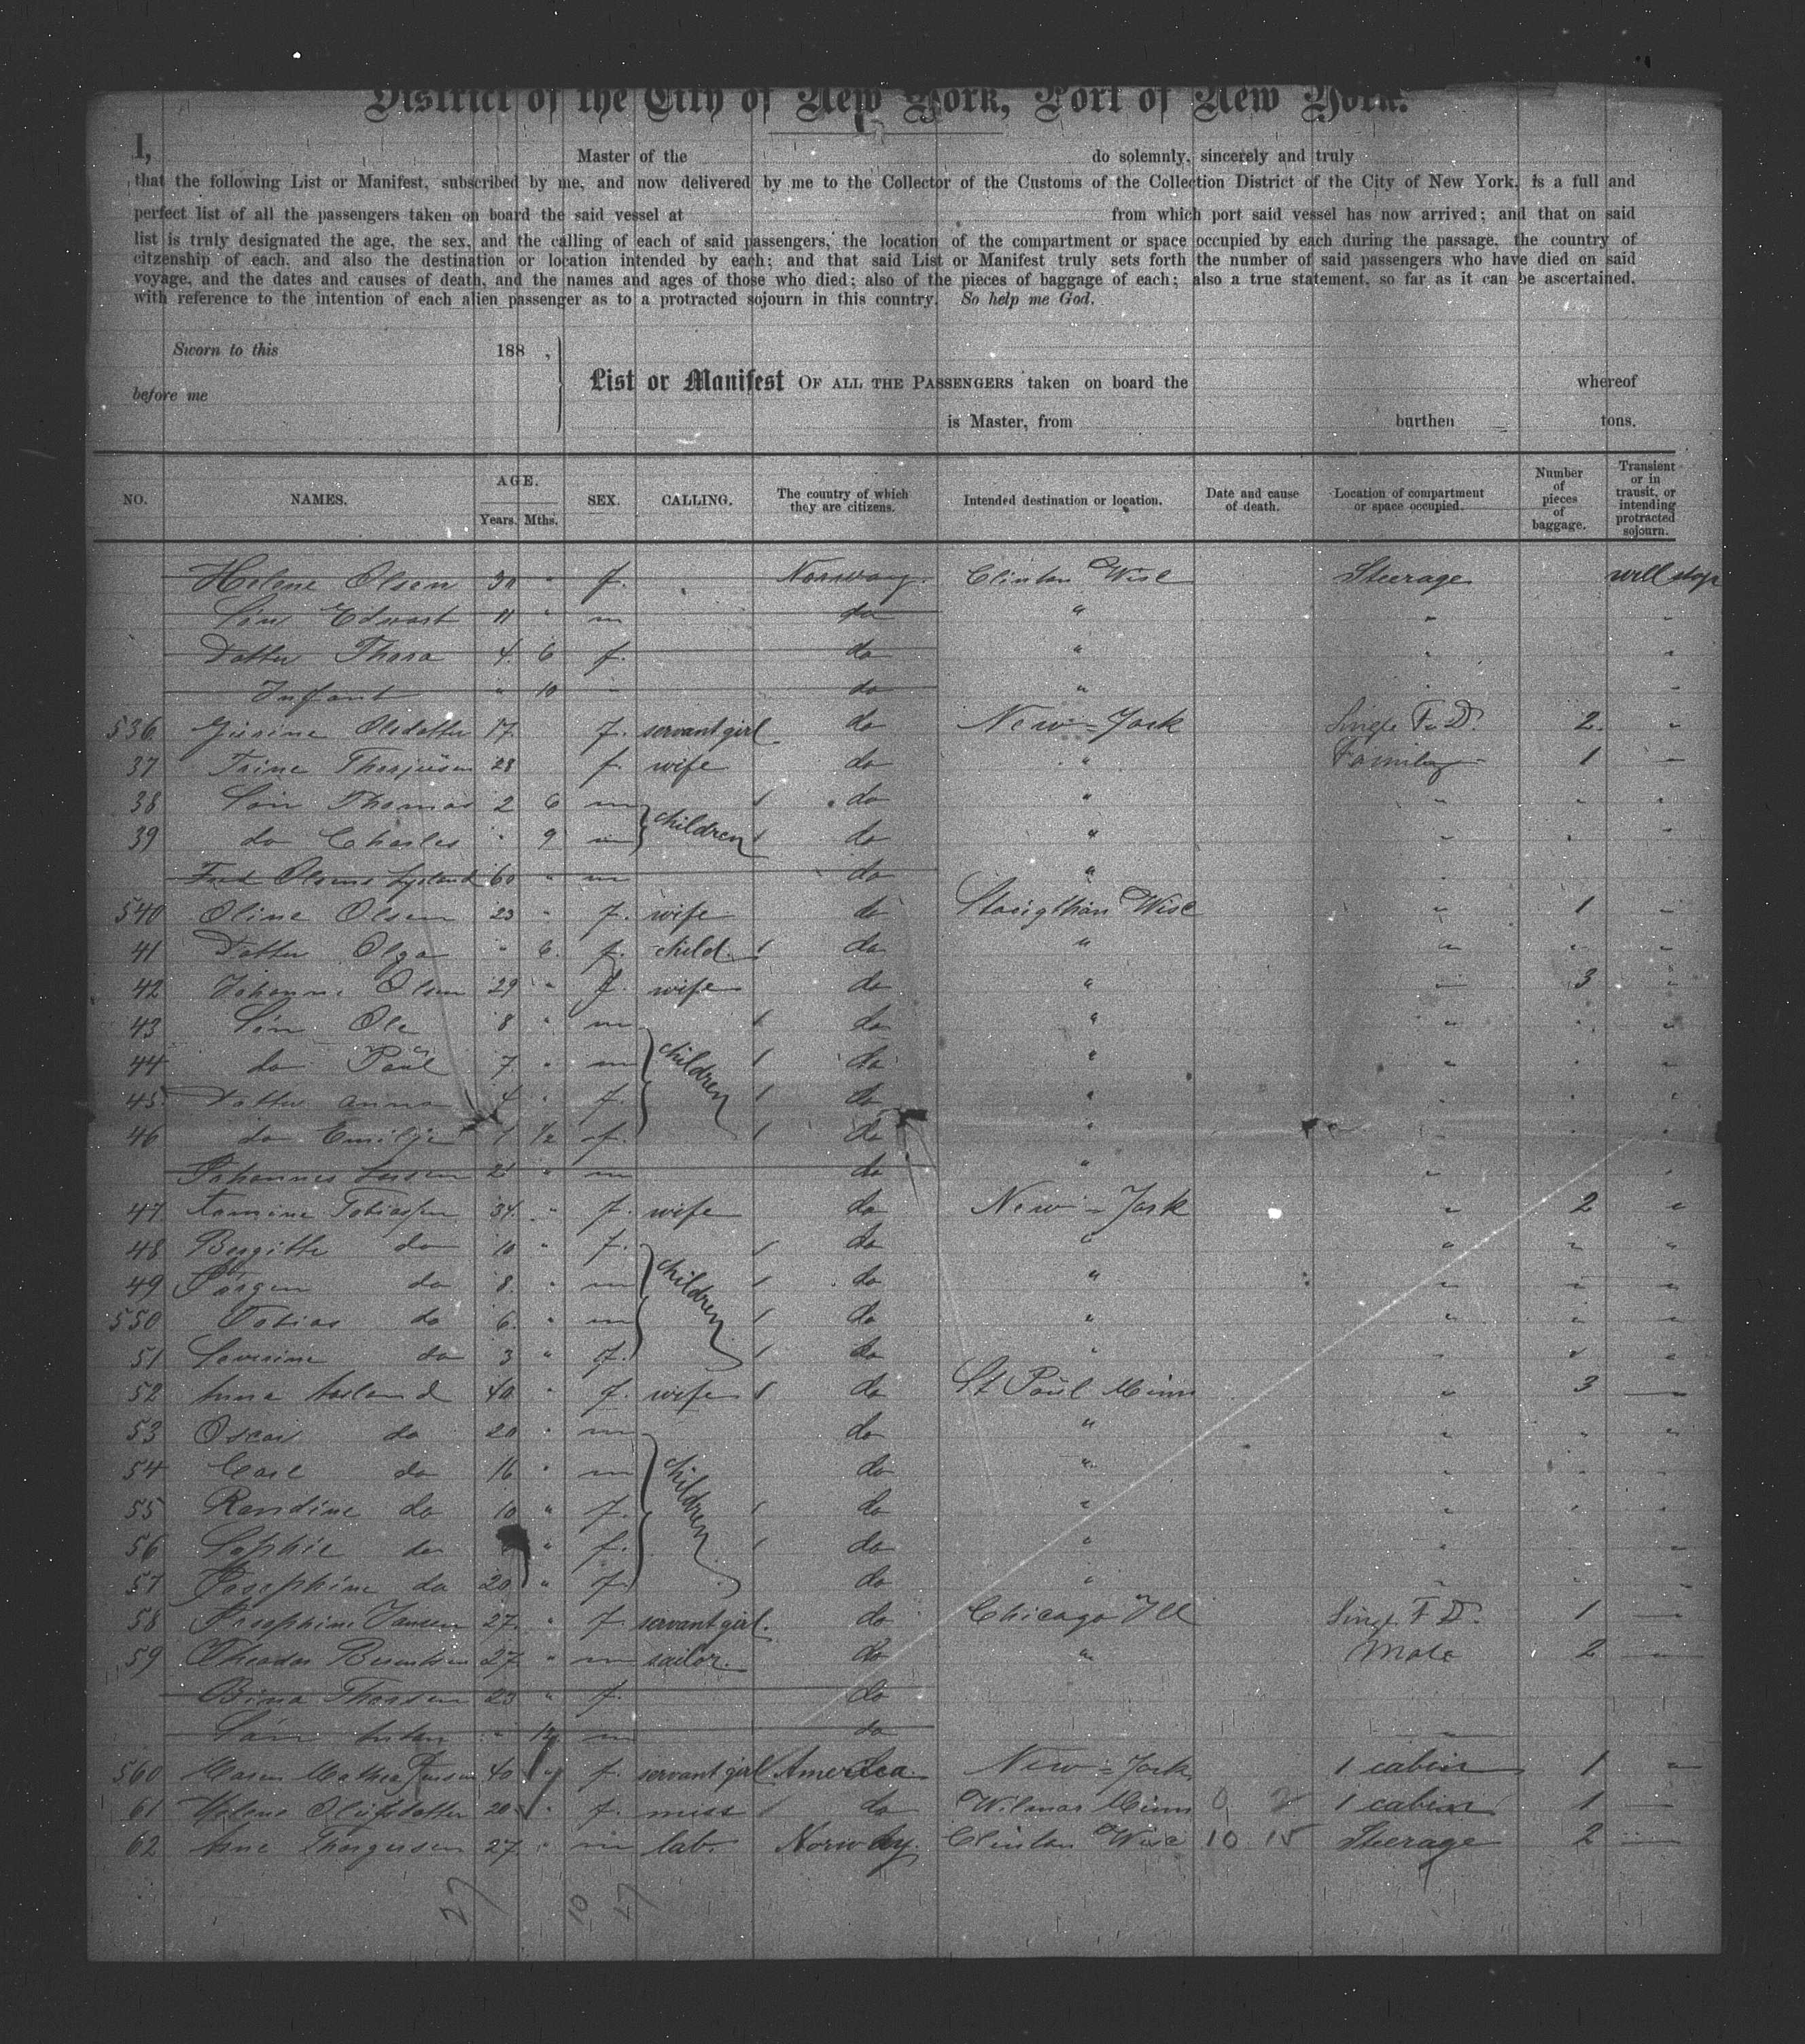 District of the City of New York, Port of New York.
I, Master of the do solemnly, sincerely and truly
that the following List or Manifest, subscribed by me, and now delivered by me to the Collector of the Customs of the Collection District of the City of New York, is a full and
perfect list of all the passengers taken on board the said vessel at from which port said vessel has now arrived; and that on said
list is truly designated the age, the sex, and the calling of each of said passengers, the location of the compartment or space occupied by each during the passage, the country of
citzenship of each, and also the destination or location intended by each; and that said List or Manifest truly sets forth the number of said passengers who have died on said
voyage, and the dates and causes of death, and the names and ages of those who died; also of the pieces of baggage of each; also a true statement, so far as it can be ascertained,
with reference to the intention of each alien passenger as to a protracted sojourn in this country. So help me God.
Sworn to this 188 ,
before me
List or Manifest OF ALL THE PASSENGERS taken on board the whereof
is Master, from burthen tons.
NO. NAMES. AGE. Years. Mths. SEX. CALLING. The country of which they are citizens. Intended destination or location. Date and cause of death. Location of compartment or space occupied. Number of pieces of baggage. Transient or in transit, or intending protracted sojourn.
Helene Olsen 30 " f. Norway. Clinton Wisc Steerage will stop
Sön Edwart 11 " m do "
Datter Thora 4 6 f. do "
Infant " 10 do "
536 Olsdatter 17. f. servant girl do New-York Single F. D. 2.
37 Trine 28 f. wife do " Family 1
38 Sön Thomas 2 6 m children do "
39 do Charles " 9 m do "
60 " m do "
540 Oline Olsen 23 " f. wife do Wisc " 1
41 Datter Olga " 6. f. child. do "
42 Johanne Olsen 29 " f. wife do " 3
43 Sön Ole 8 " m children do "
44 do Paül 7 " m do "
45 Datter Anna 4 " f. do "
46 do Emilje 1 1/2 f. do "
Johannes 21 " m do "
47 34. " f. wife do New-York " 2
48 Bergitte do 10 " f. children do "
49 Jörgen do 8. " m do "
550 Tobias do 6. " m do "
51 Severine do 3 " f. do "
52 Anna 40 " f. wife do St Paül Minn " 3
53 Oscar do 20 " m children do "
54 Carl do 16 " m do "
55 Randine do 10 " f. do "
56 Sophie do " f. do "
57 Josephine do 20 " f. do "
58 Josephine Jansen 27. " f. servant girl. do Chicago Ill Single F. D. 1
59 Theodor 27 " m sailor. do " Male 2
Bina 23 " f. do
Sön " m do
560 Maren Mathea 40 " f. servant girl America New-York 1 cabin 1
61 Helene 20 " f. miss do Wilmar Minn 1 cabin 1
62 27. " m lab. Norway. Clinton Wisc 10 15 Steerage 2
27 10 27